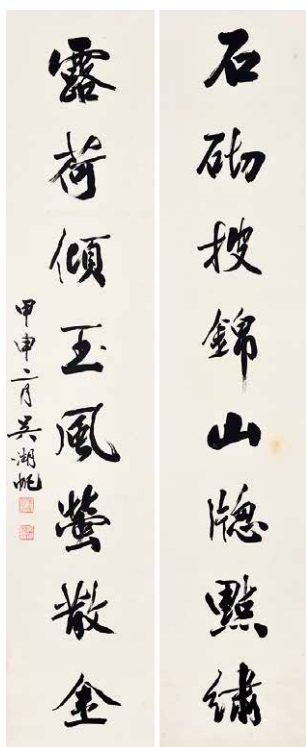 石砌披錦山牕點繡
露荷傾玉風螢散金
甲申二月吳湖帆